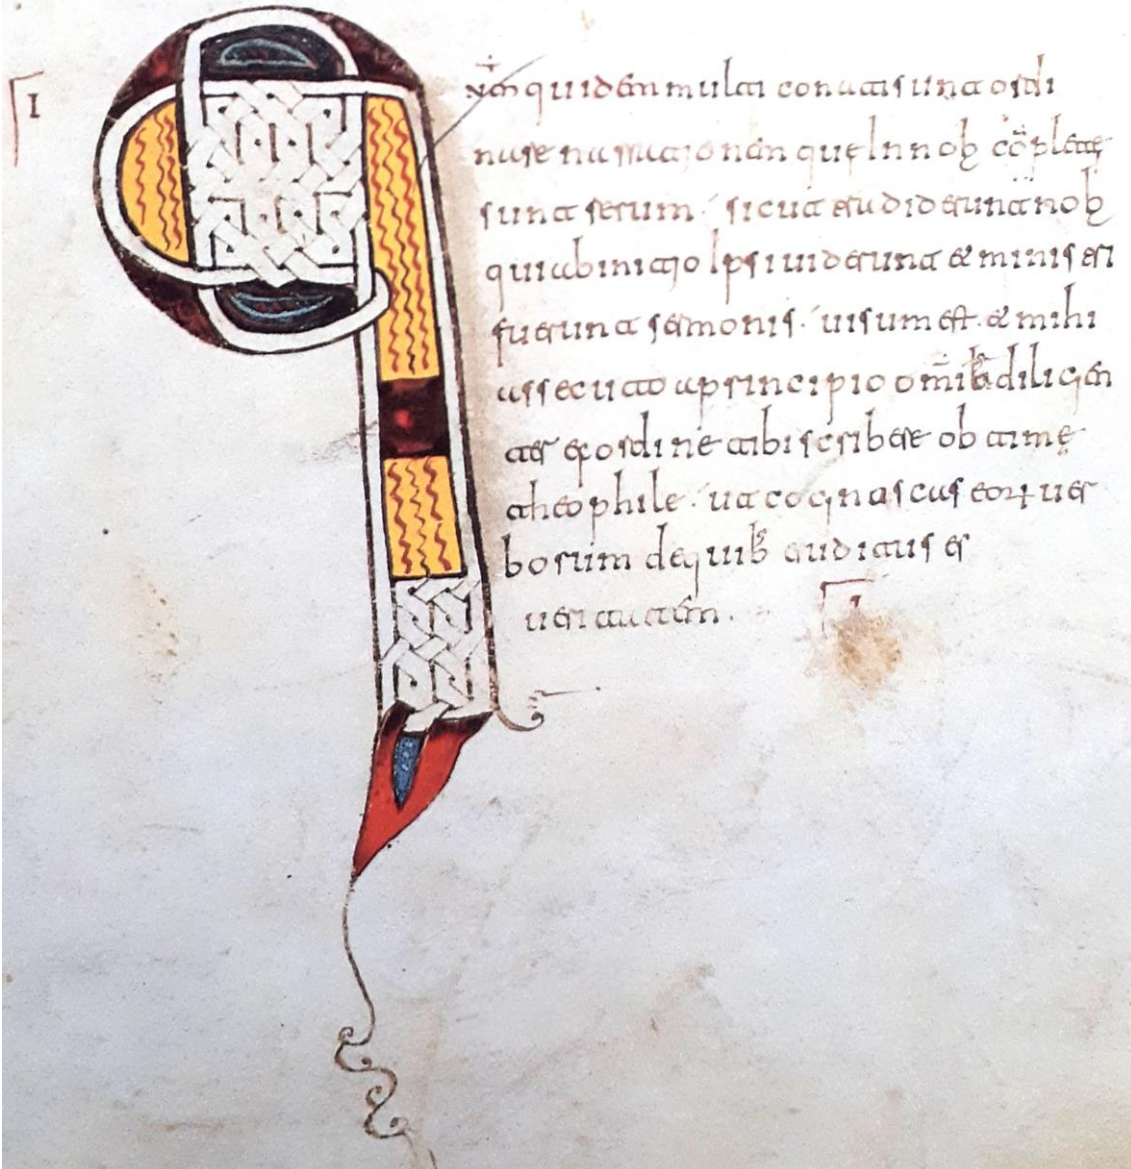 I
Qnm̄ quidem multi conati sunt ordi
nare narrationem quę In nob̄ cō̄pletę
sunt rerum. sicut tradiderunt nob̄
qui ab initio Ipsi uiderunt & ministri
fuerunt sermonis. uisum est & mihi
assecuto a principio om̄ib; diligen
ter ex ordine tibi scribere obtimę
theophile. ut cognoscas eoꝝ uer
borum de quib; eruditus es
ueritatem.